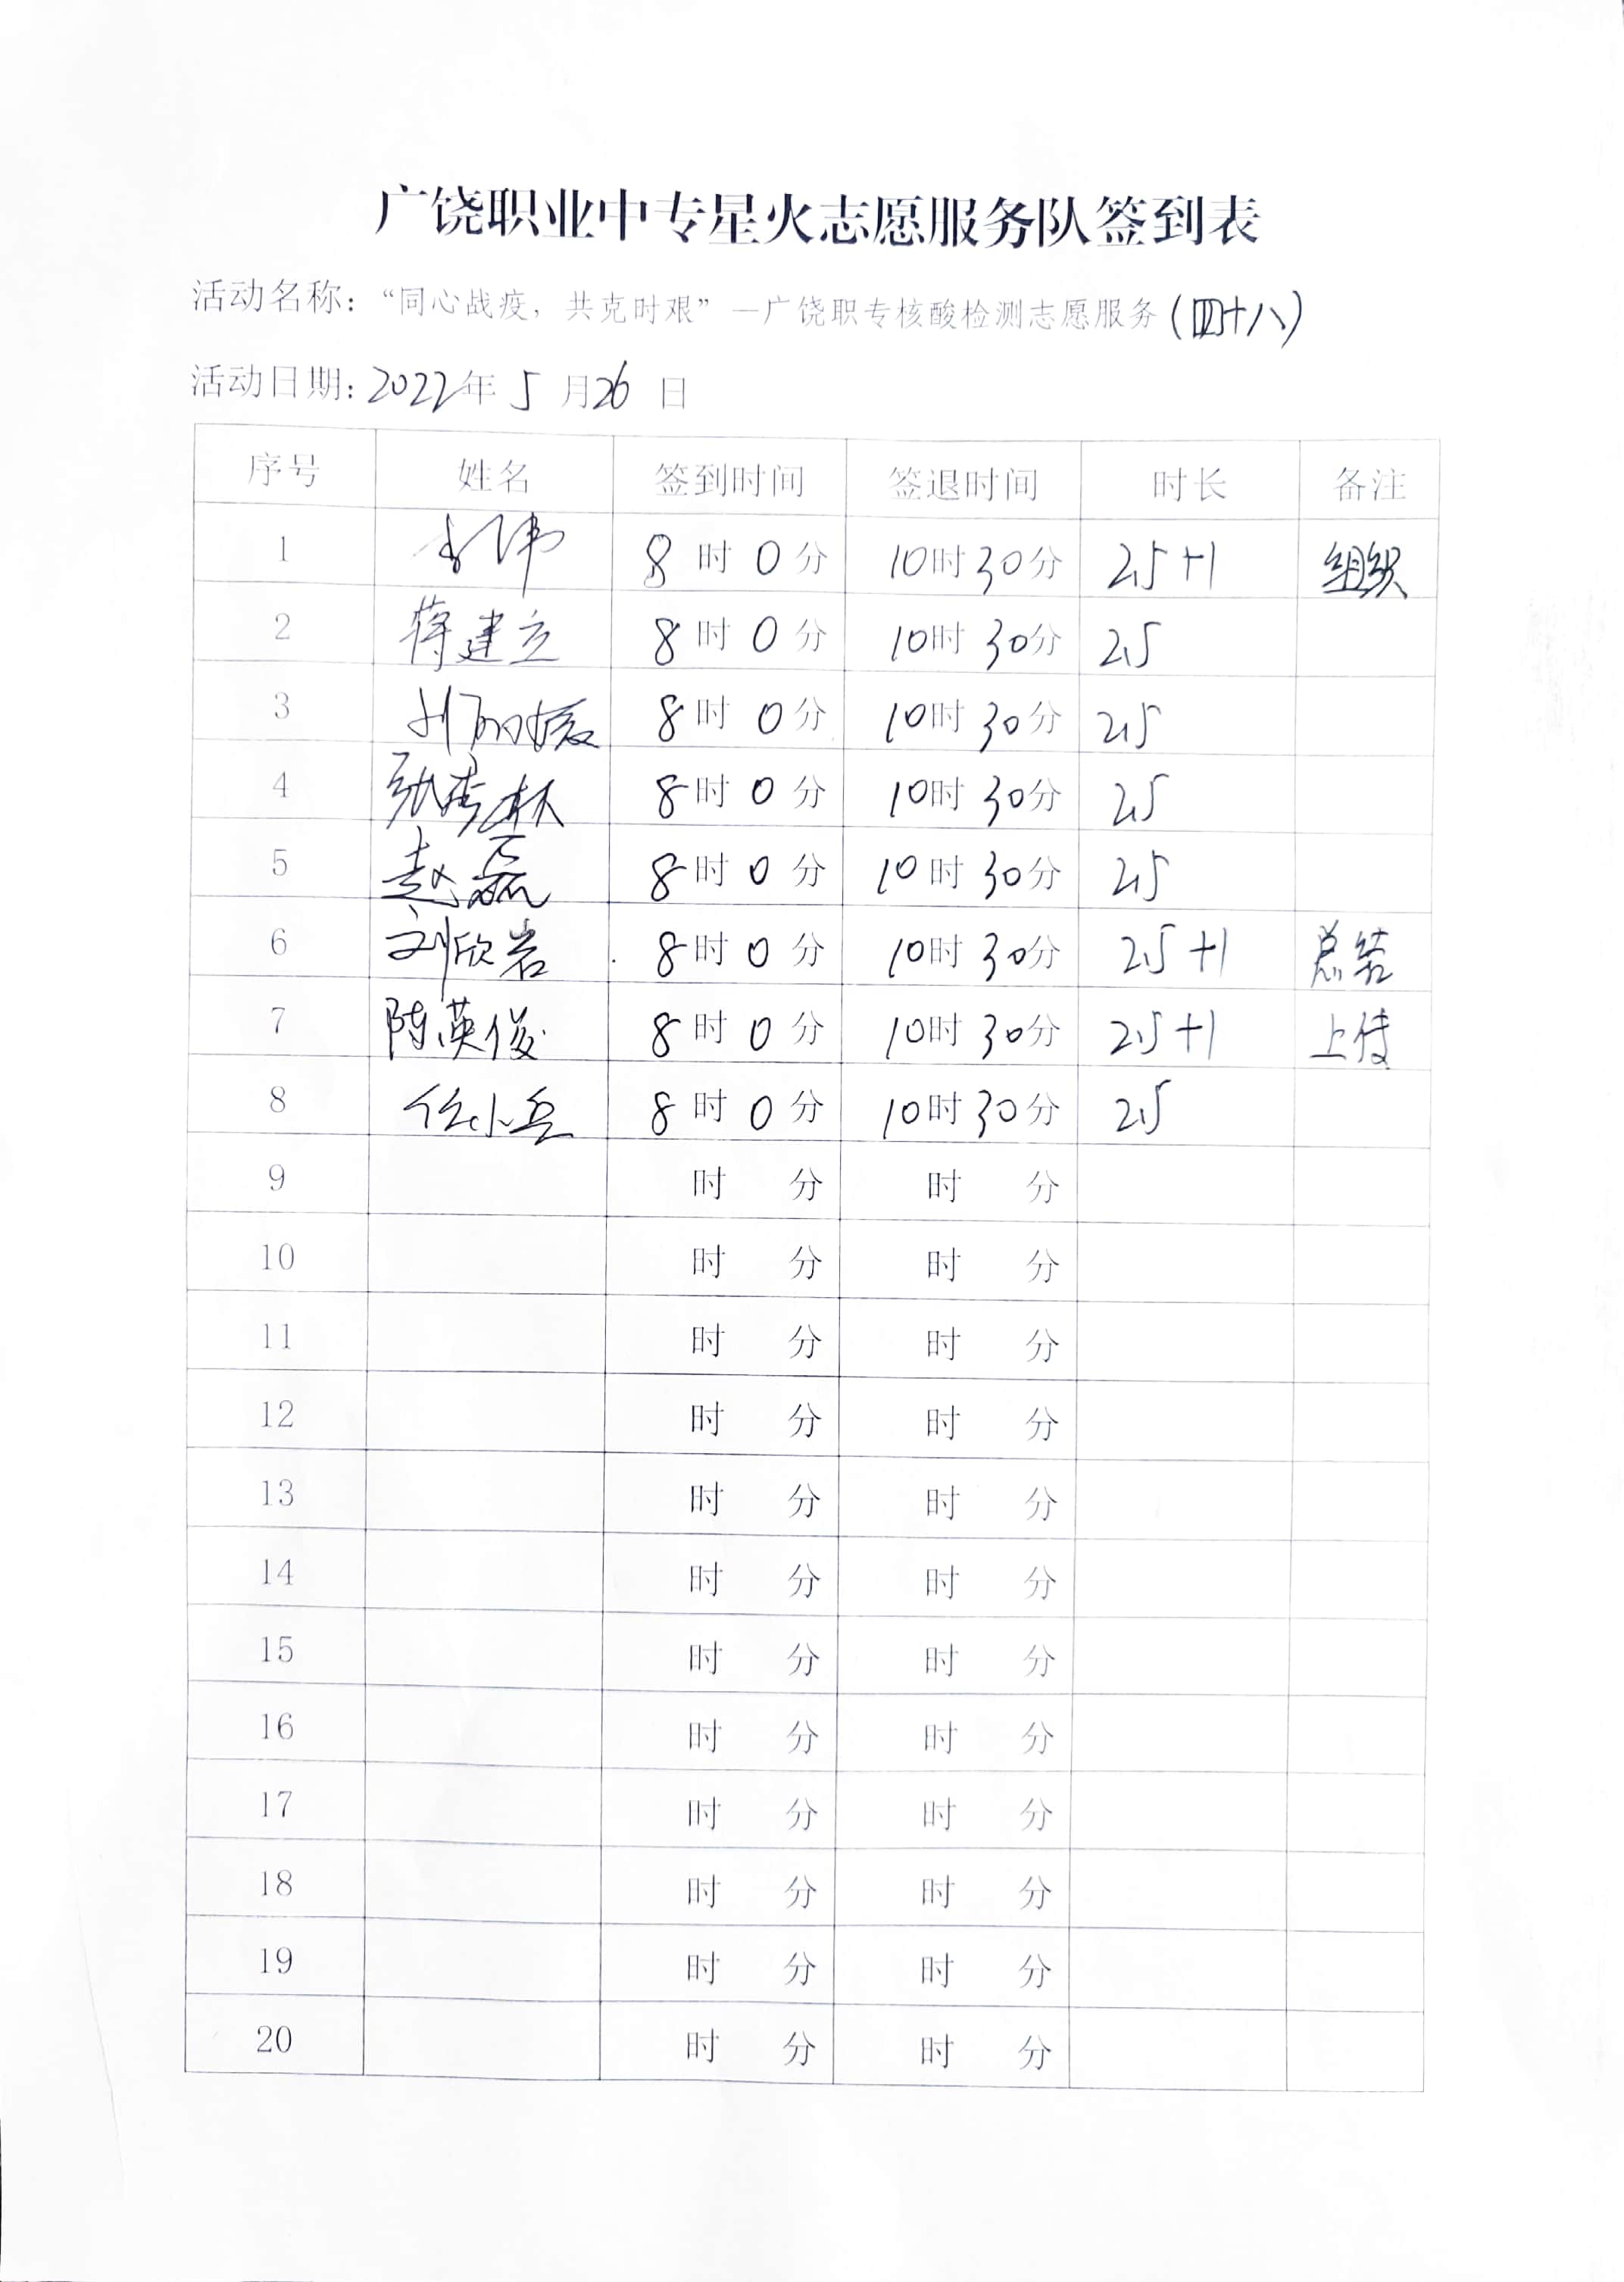 广饶职业中专星火志愿服务队签到表
活动名称：“同心战疫，共克时艰”—广饶职专核酸检测志愿服务（四十八）
活动日期：2022年 5 月 26 日
序号 姓名 签到时间 签退时间 时长 备注
1 8 时 0 分 10时30分 2.5+1 组织
2 蒋建立 8 时 0 分 10时30分 2.5
3 8 时 0 分 10时30分 2.5
4 8 时 0 分 10时30分 2.5
5 赵磊 8 时 0 分 10时30分 2.5
6 刘欣岩 8 时 0 分 10时30分 2.5+1 总结
7 陈英俊 8 时 0 分 10时30分 2.5+1 上传
8 任小兵 8 时 0 分 10时30分 2.5
9 时 分 时 分
10 时 分 时 分
11 时 分 时 分
12 时 分 时 分
13 时 分 时 分
14 时 分 时 分
15 时 分 时 分
16 时 分 时 分
17 时 分 时 分
18 时 分 时 分
19 时 分 时 分
20 时 分 时 分